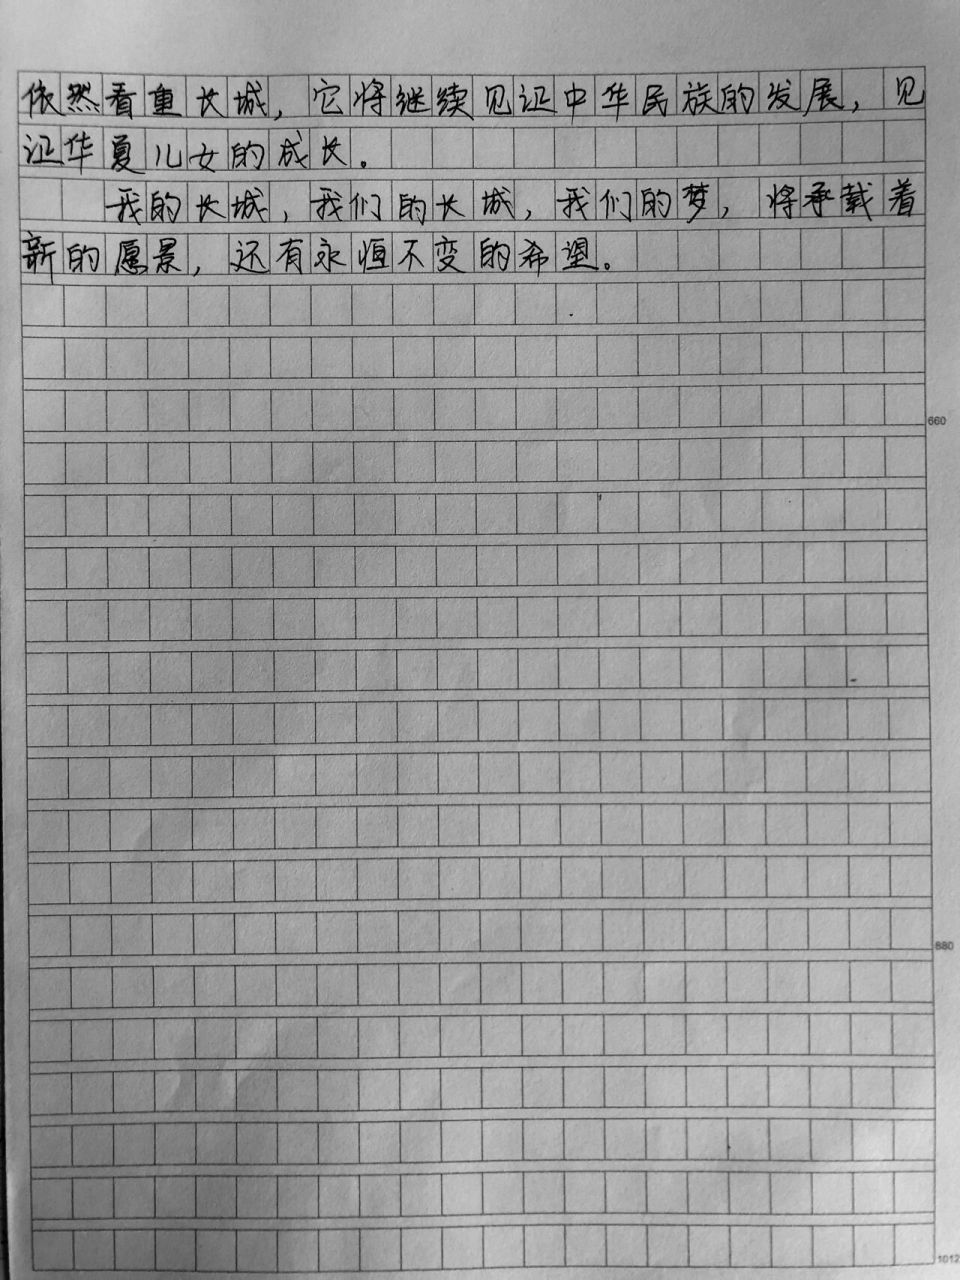 依然看重长城，它将继续见证中华民族的发展，见
证华夏儿女的成长。
我的长城，我们的长城，我们的梦，将承载着
新的愿景，还有永恒不变的希望。
660
880
1012